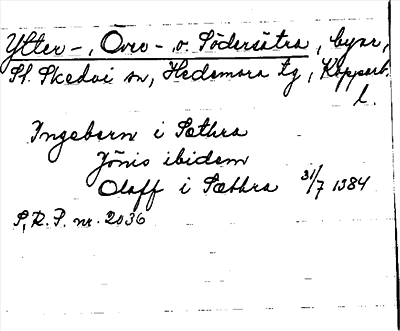 Ytter-, Över- o. Södersätra, byar,
St. Skedvi sn, Hedemora tg, Kopparb.
l.
Ingeborn i Sæthra
Jönis ibidem
Olaff i Sæthra 31/7 1384
S.R.P. nr. 2036